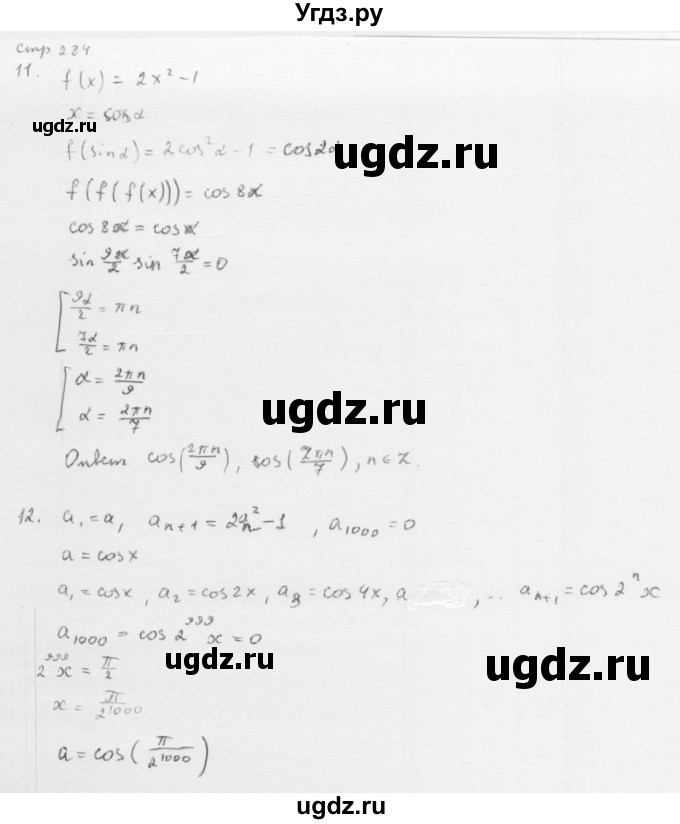 Угдз.ру
Стр 284
11. f(x) = 2x² - 1
x = cosα
ugdz.ru
f(sinα) = 2cos²α - 1 = cos2α
ugdz.ru
f(f(f(x))) = cos 8α
cos 8α = cosα
sin 9α/2 sin 7α/2 = 0
[ 9α/2 = πn
7α/2 = πn
[ α = 2πn/9
α = 2πn/7
ugdz.ru
Ответ cos(2πn/9), cos(2πn/7), n∈Z.
12. a₁ = a, aₙ₊₁ = 2aₙ² - 1, a₁₀₀₀ = 0
a = cosx
a₁ = cosx, a₂ = cos2x, a₃ = cos4x, a , ... aₙ₊₁ = cos 2ⁿx
a₁₀₀₀ = cos 2⁹⁹⁹x = 0
ugdz.ru
ugdz.ru
2⁹⁹⁹x = π/2
x = π/2¹⁰⁰⁰
a = cos(π/2¹⁰⁰⁰)
ugdz.ru